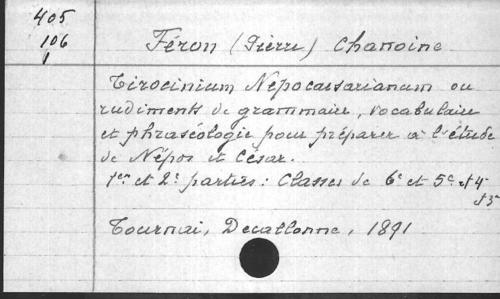 405
106
1
Féron (Pierre) Chanoine
Tirocinium Népocaesarianum ou
rudiments de grammaire, vocabulaire
et phraséologie pour préparer à l'étude
de Népos et César.
1re et 2e parties : Classes de 6e et 5e et 4
et 5
Tournai, Decallonne, 1891